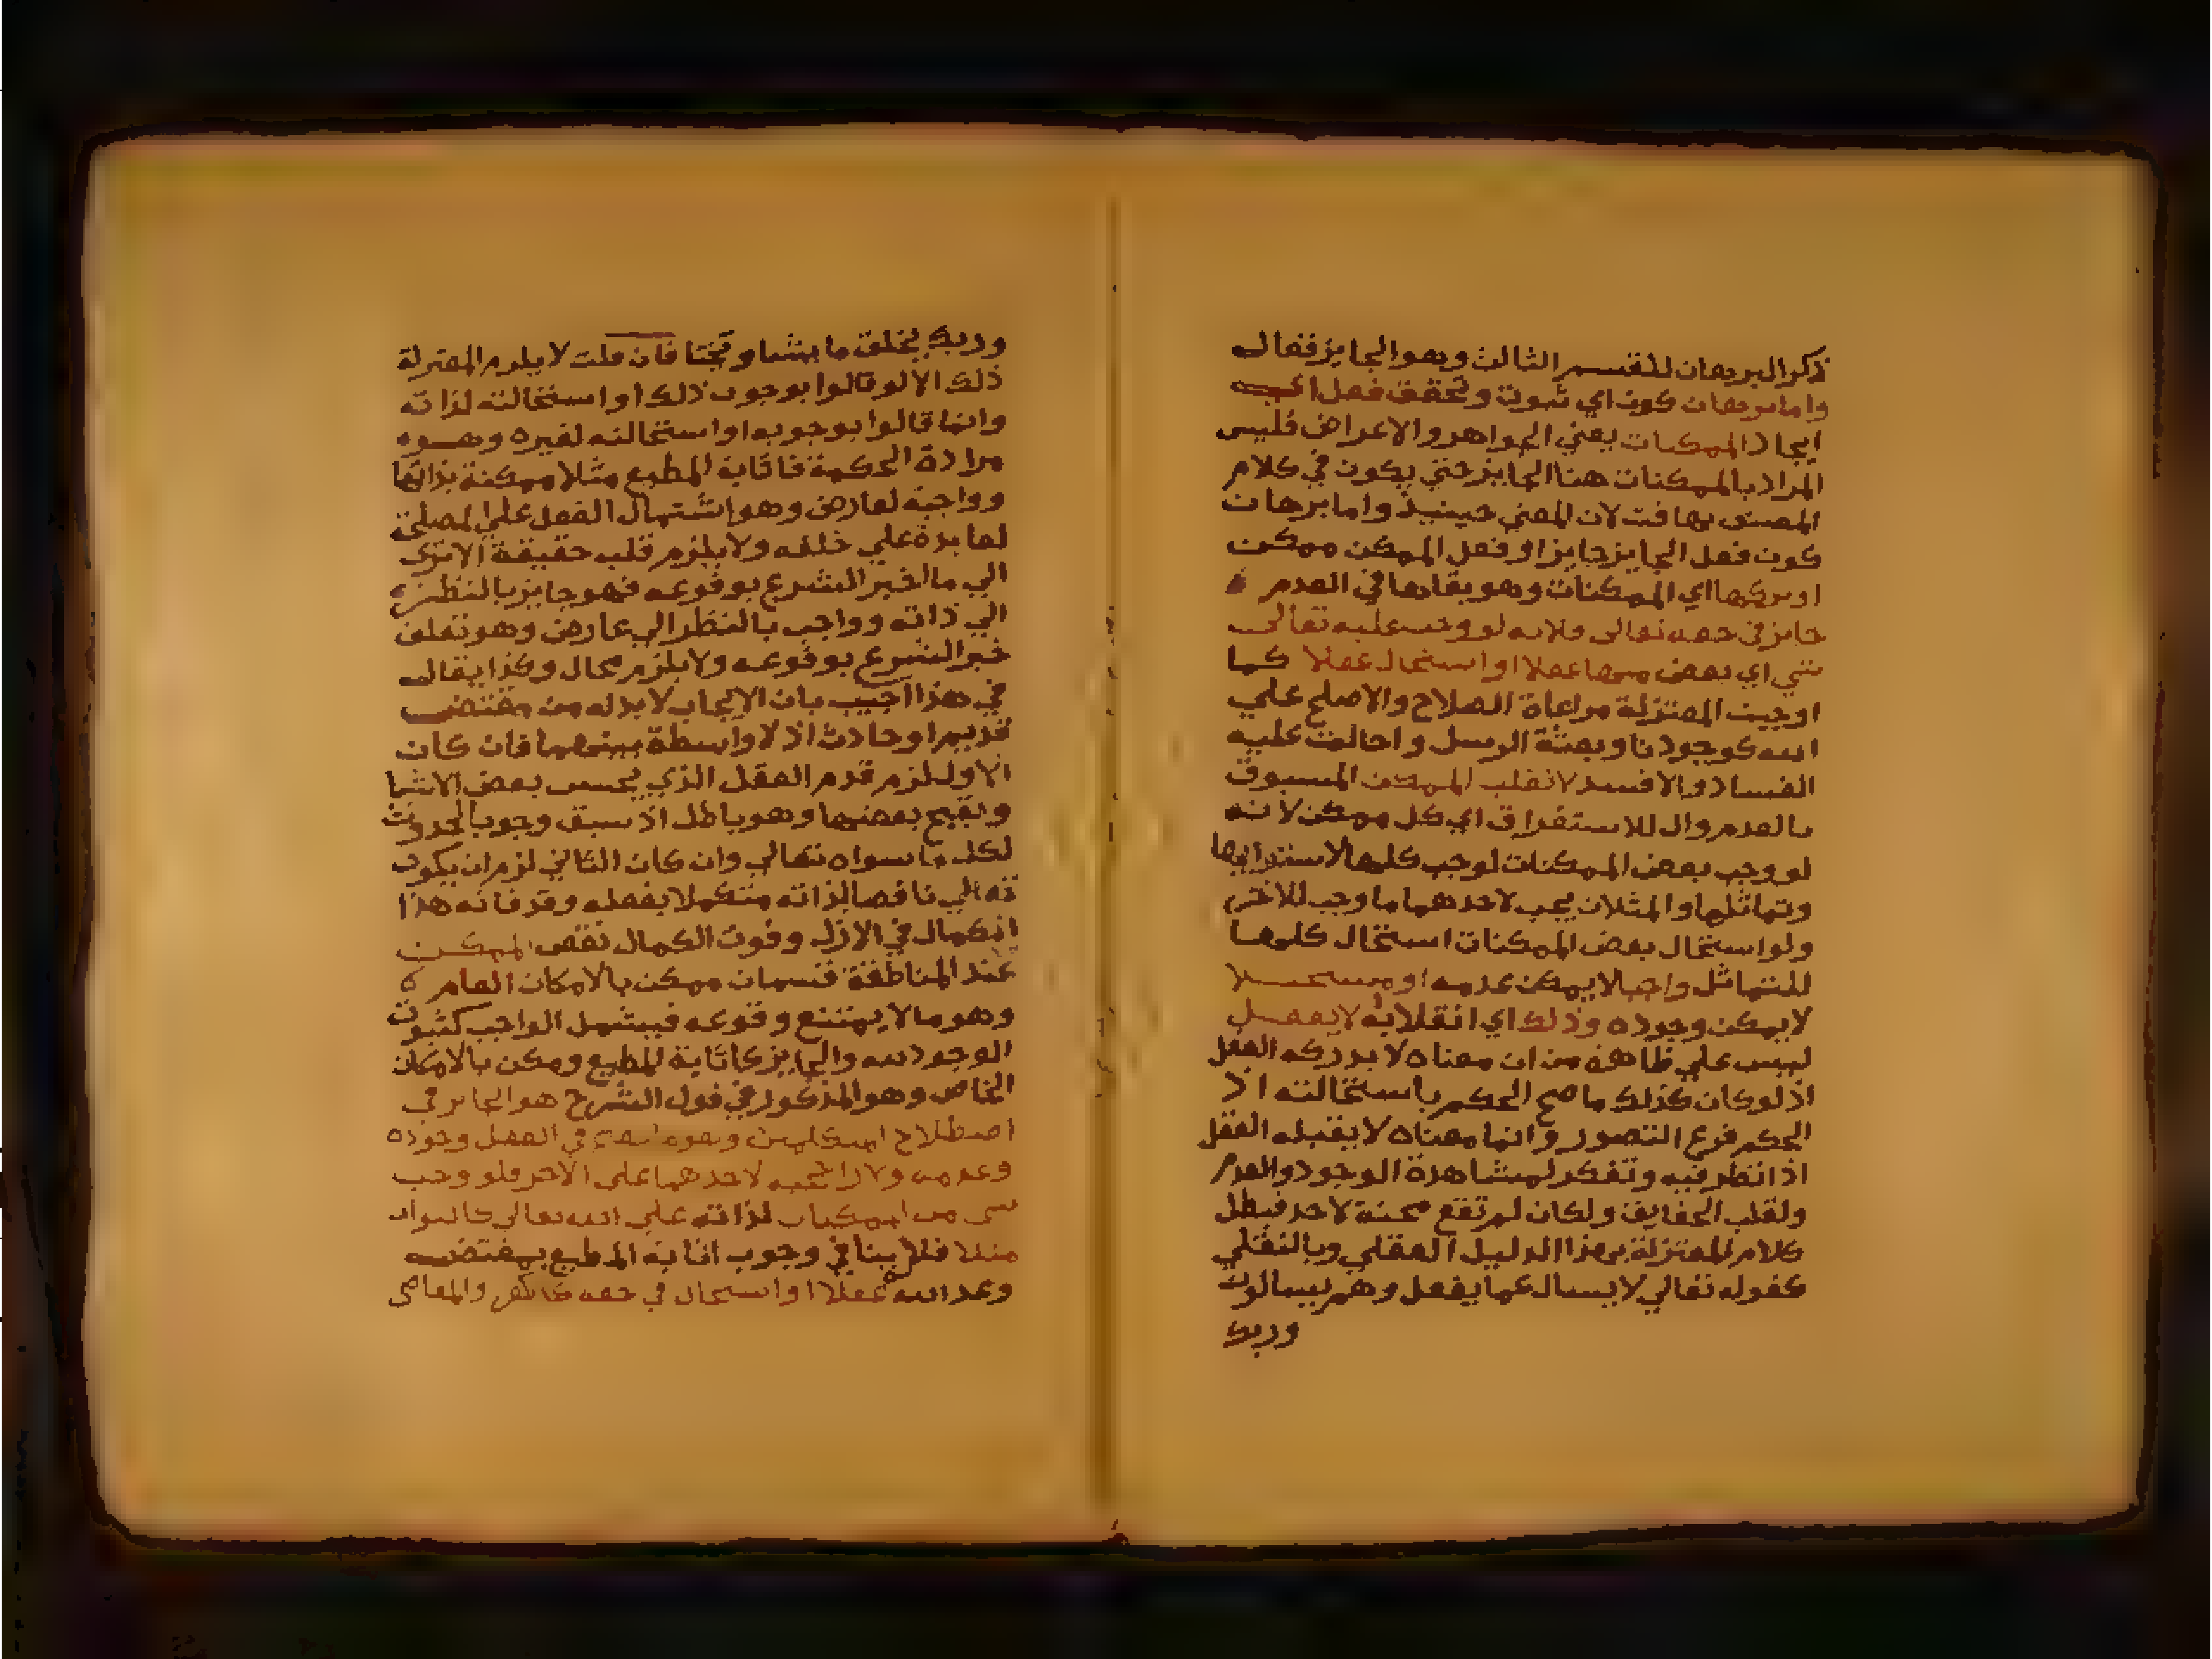 ذكر البرهان للقسم الثالث وهو الجايز فقال
واما برهان كون اي ثبوت وتحقق فعل اي
ايجاد الممكنات يعني الجواهر والاعراض فليس
المراد بالممكنات هنا الجايز حتي يكون في كلام
المصنف تهافت لان المعني حينيذ واما برهان
كون فعل الجايز جايزا او فعل الممكن ممكن
او تركها اي الممكنات وهو بقاها في العدم
جايز في حقه تعالى فلانه لو وجب عليه تعالى
شي اي بعض منها عقلا او استحال عقلا كما
اوجبت المعتزلة مراعاة الصلاح والاصلح علي
الله كوجودنا وبعثة الرسل واحالت عليه
الفساد والافسد لانقلب الممكن المسبوق
بالعدم وال للاستغراق اي كل ممكن لانه
لو وجب بعض الممكنات لوجب كلها لاستوايها
وتماثلها والمثلان يجب لاحدهما ما وجب للاخر
ولو استحال بعض الممكنات استحال كلها
للتماثل واجبا لا يمكن عدمه او مستحيلا
لا يمكن وجوده وذلك اي انقلابه لا يعقل
ليس علي ظاهره من ان معناه لا يدركه العقل
اذ لو كان كذلك ما صح الحكم باستحالته اذ
الحكم فرع التصور وانما معناه لا يقبله العقل
اذا نظر فيه وتفكر لمشاهدة الوجود والعدم
ولقلب الحقايق ولكان لم تقع محنة لاحد فبطل
كلام المعتزلة بهذا الدليل العقلي وبالنقلي
كقوله تعالي لا يسال عما يفعل وهم يسالون
وربك
وربك يخلق ما يشا ويختا فان قلت لا يلزم المعتزلة
ذلك الا لو قالوا بوجوب ذلك او استحالته لذاته
وانما قالوا بوجوبه او استحالته لغيره وهو
مرادة الحكمة فاثابة المطيع مثلا ممكنة بذاتها
وواجبة لعارض وهو اشتمال الفعل علي المصلحة
لعايدة علي خلقه ولا يلزم قلب حقيقة الا تري
الي ما اخبر الشرع بوقوعه فهو جايز بالنظر
الي ذاته وواجب بالنظر الي عارض وهو تعلق
خبر الشرع بوقوعه ولا يلزم محال وكذا يقال
في هذا اجيب بان الايجاب لا بد له من مقتضى
قديم او حادث اذ لا واسطة بينهما فان كان
الاول لزم قدم العقل الذي يحسن بعض الاشيا
وتقبح بعضها وهو باطل اذ سبق وجوب الحدوث
لكل ما سواه تعالي وان كان الثاني لزم ان يكون
تعالي ناقصا لذاته متكملا بفعله وقد فاته هذا
الكمال في الازل وفوت الكمال نقص الممكن
عند المناطقة قسمان ممكن بالامكان العام
وهو ما لا يمتنع وقوعه فيشمل الواجب كثبوت
الوجود لله والجايز كاثابة المطيع وممكن بالامكان
الخاص وهو المذكور في قول الشرح هو الجايز في
اصطلاح المتكلمين وهو ما يصح في العقل وجوده
وعدمه ولا راجحية لاحدهما على الاخر فلو وجب
شي من الممكنات لذاته علي الله تعالي كالثواب
مثلا فلا ينافي وجوب اثابة المطيع بمقتضى
وعد الله عقلا او استحال في حقه كالكفر والمعاصى